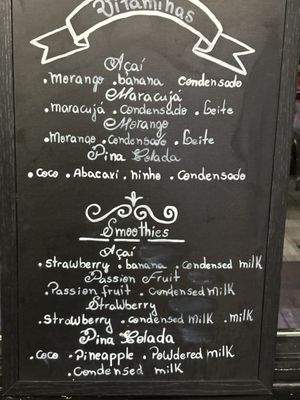 Vitaminas
Açaí
.Morango .banana condensado
Maracujá
.maracujá .Condensado .Leite
Morango
.Morango .Condensado .Leite
Pina Colada
.Coco .Abacaxi .Ninho .Condensado
Smoothies
Açaí
.strawberry .banana .condensed milk
Passion Fruit
.Passion fruit .Condensed Milk
Strawberry
.Strowberry .condensed milk .milk
Pina Colada
.Coco .Pineapple .Powdered milk
.Condensed milk